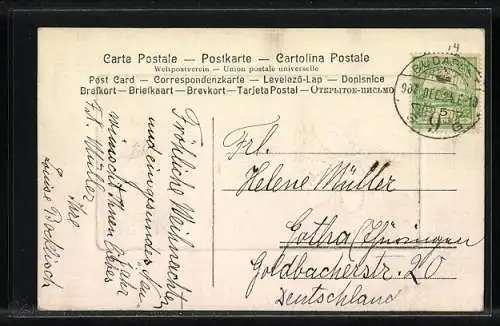 Carte Postale – Postkarte – Cartolina Postale
Weltpostverein – Union postale universelle
Post Card – Correspondenzkarte – Levelező-Lap – Dopisnice
Brefkort – Briefkaart – Brevkort – Tarjeta Postal – Открытое-письмо
BUDAPEST
907 DEC 24
5
Frl.
Helene Müller
Gotha/Thüringen
Goldbacherstr. 20
Deutschland
Fröhliche Weihnachten
und ein gesundes Neu-
jahr
wünscht Ihnen liebes
Frl. Müller
Ihre
Luise